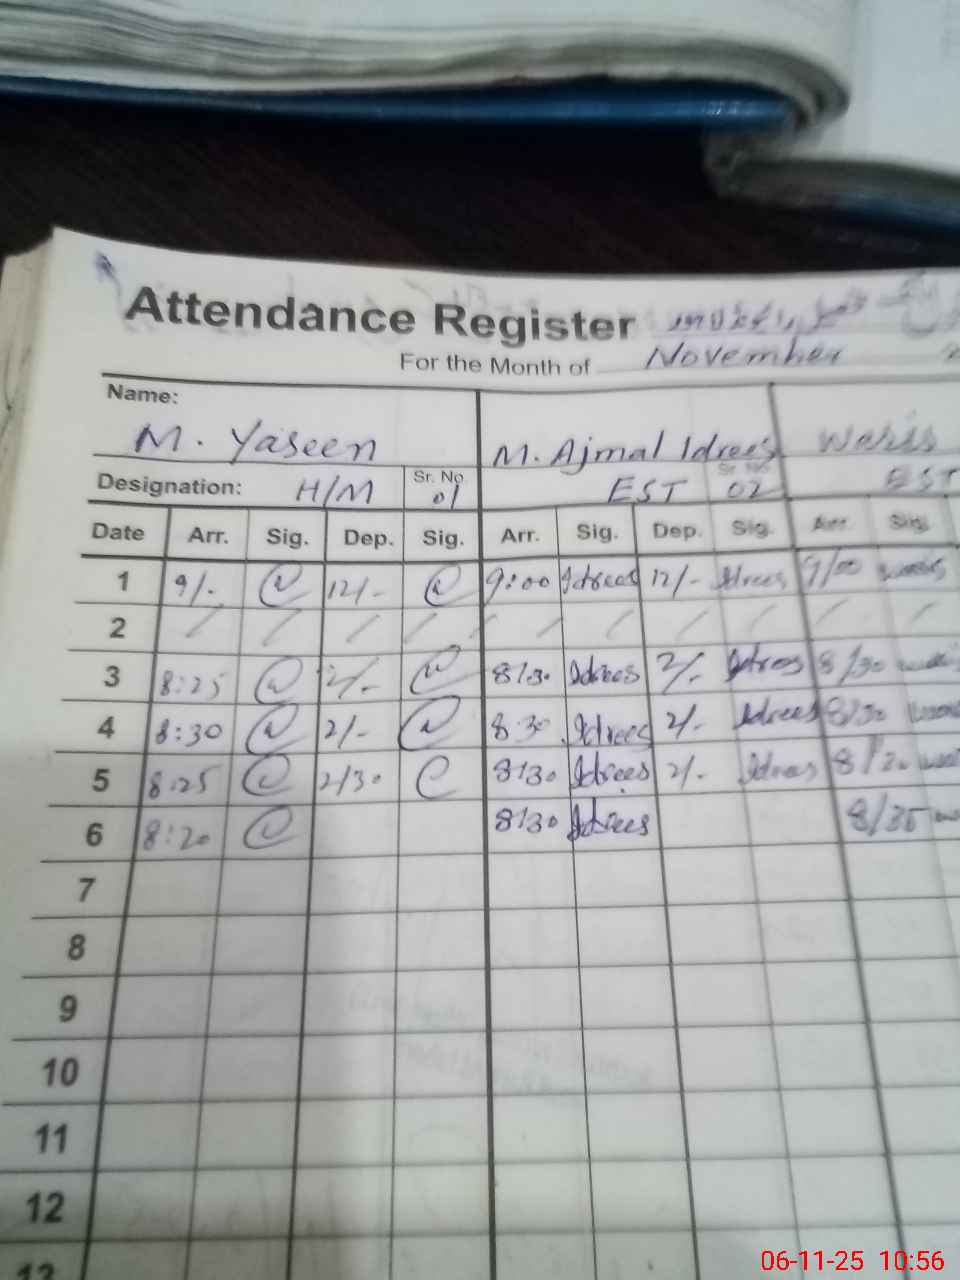 Attendance Register
For the Month of November
Name:
M. Yaseen M. Ajmal Idrees Waris
Designation: H/M Sr. No. 01 EST Sr. No. 02 EST
Date Arr. Sig. Dep. Sig. Arr. Sig. Dep. Sig. Arr. Sig.
1 9/- 12/- 9:00 Idrees 12/- Idrees 9/00 Waris
2 / / / / / / / / / /
3 8:25 2/- 8/30 Idrees 2/- Idrees 8/30
4 8:30 2/- 8:30 Idrees 2/- Idrees 8/30
5 8:25 2/30 8/30 Idrees 2/- Idrees 8/30
6 8:20 8/30 Idrees 8/35
7
8
9
10
11
12
13
06-11-25 10:56